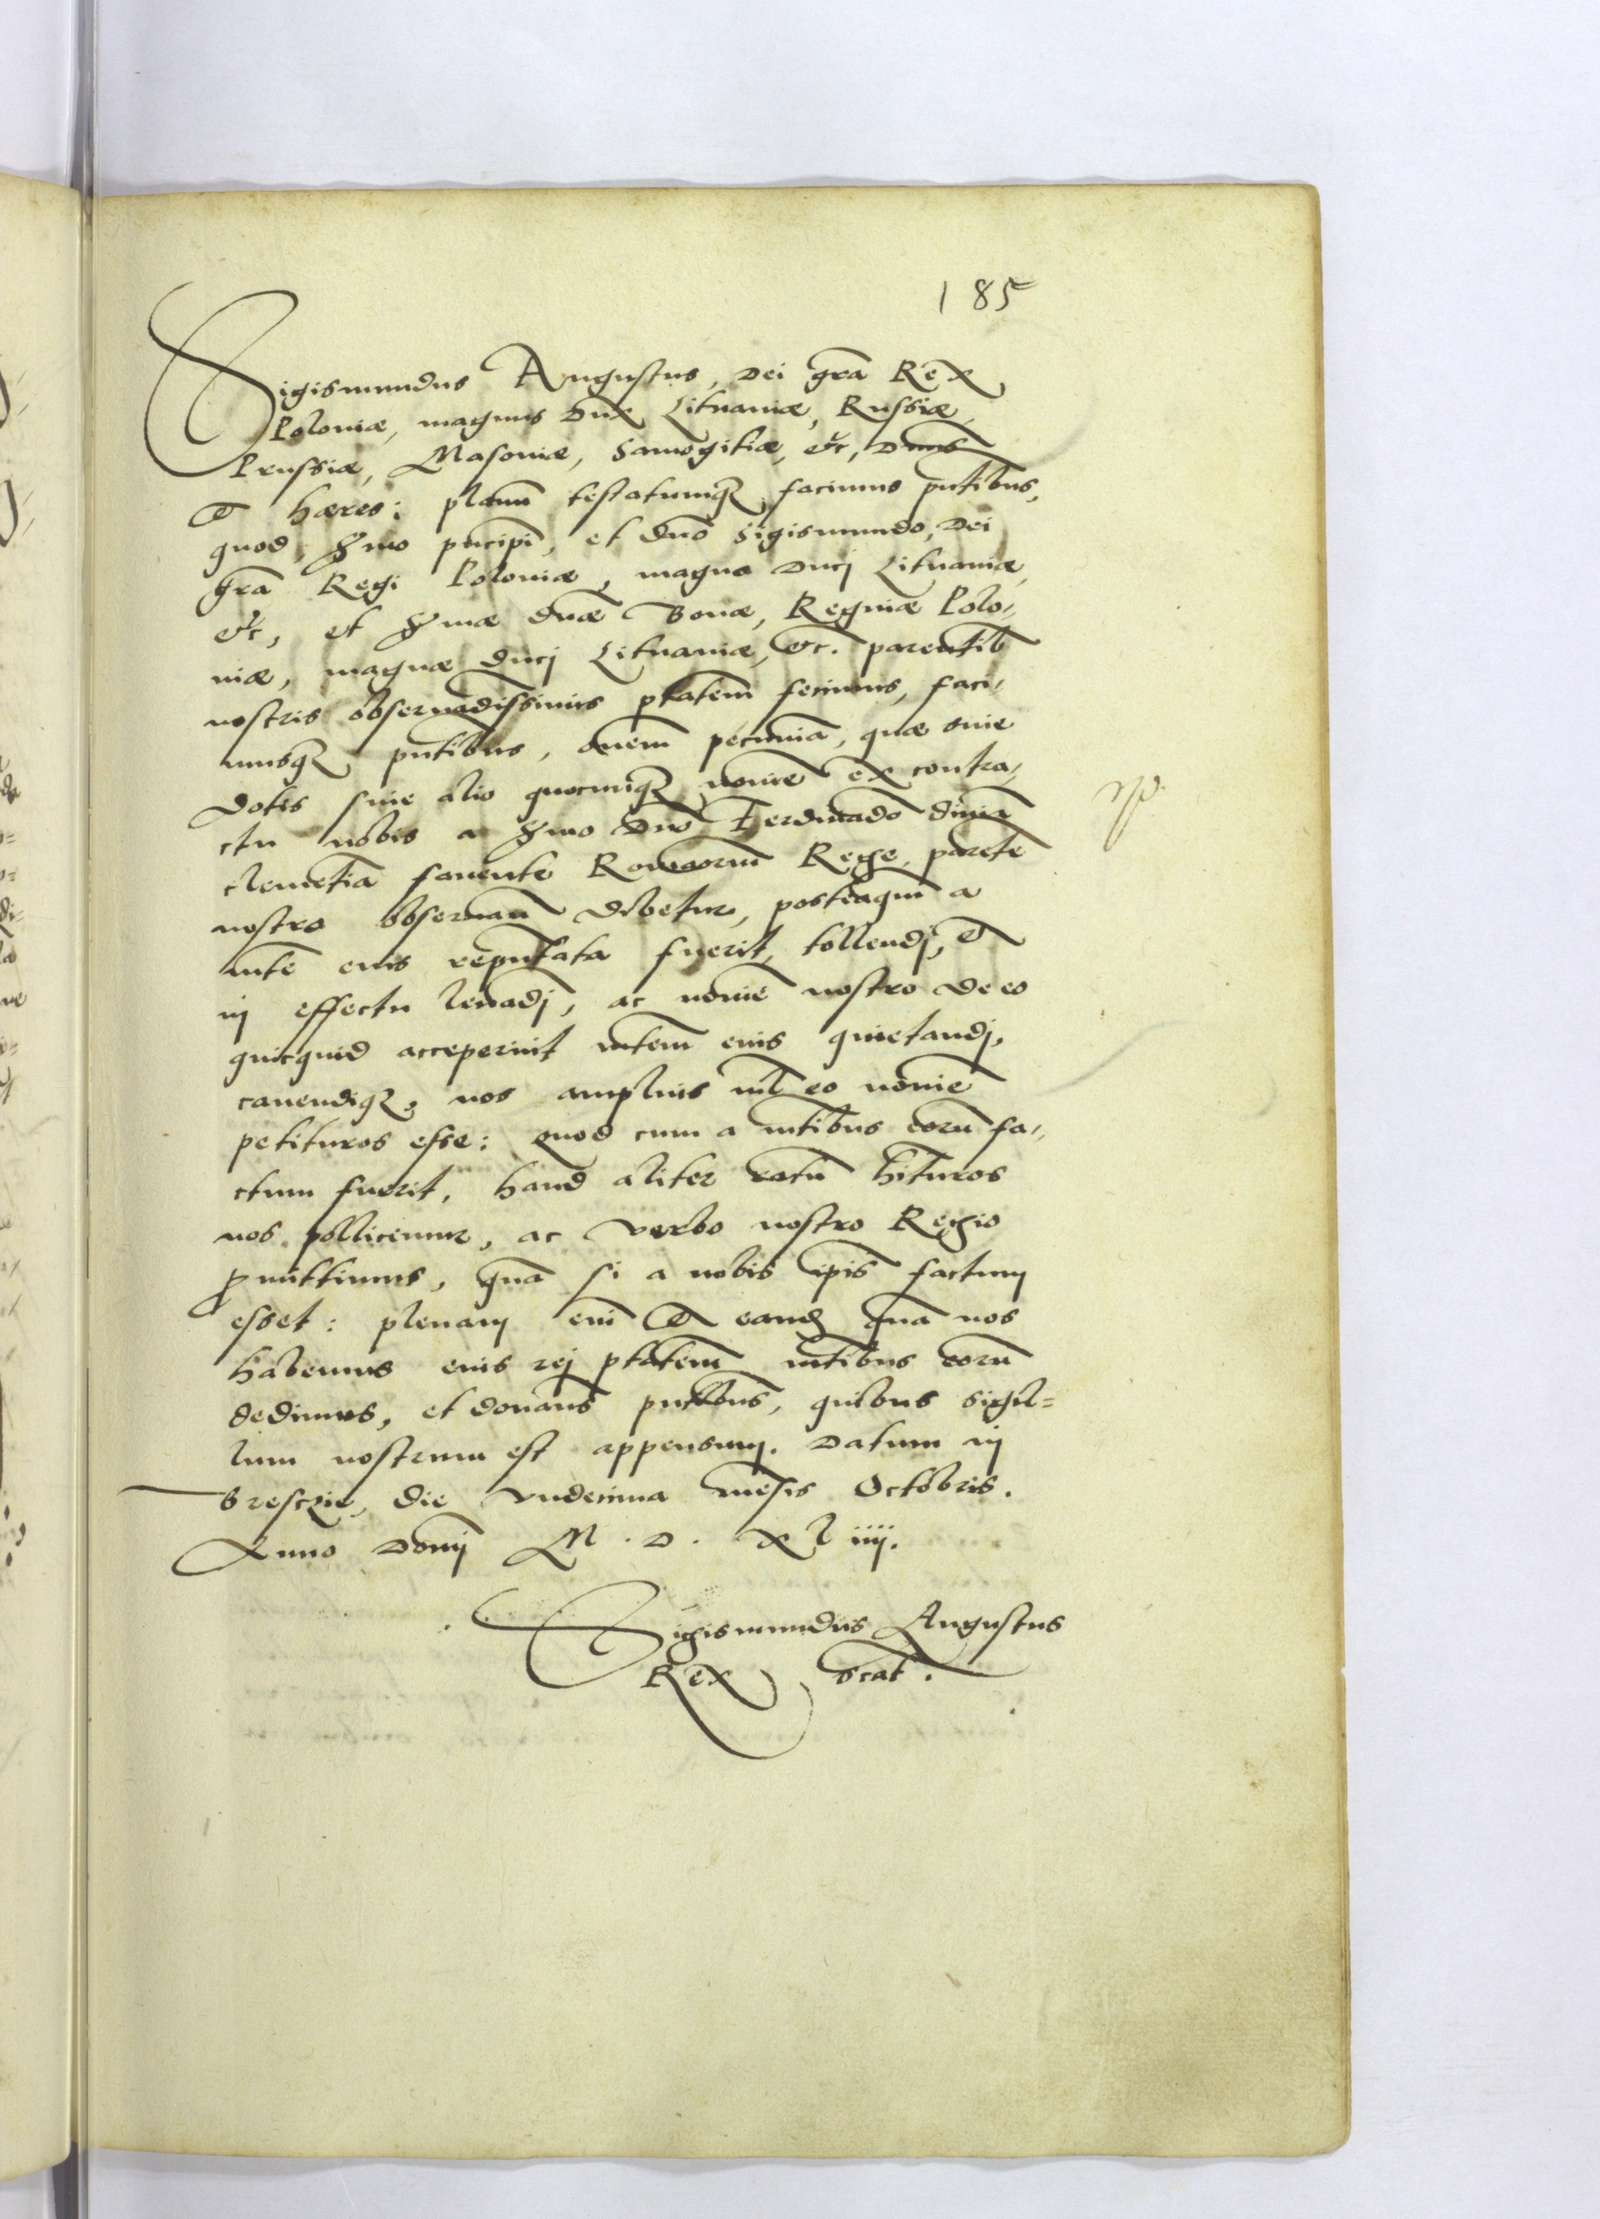 185
Sigismundus Augustus, Dei gra͠ Rex
Poloniæ, magnus Dux Lituaniæ, Russiæ,
Prussiæ, Masoviæ, Samogitiæ, etc, Dn͠s
et hæres: planu͠ testatumq; facimus pn͠tibus,
quod, Ser͠mo pn͠cipi, et dn͠o Sigismundo, Dei
gra͠ Regi Poloniæ, magno Ducj Lituaniæ,
etc, et Ser͠mæ dn͠æ Bonæ, Reginæ Polo,
niæ, magnæ Ducj Lituaniæ, etc. parentib͠
nostris observa͠dissimis p͠tatem fecimus, faci,
musq; pn͠tibus, o͠nem pecunia͠, quæ siue
Dotis siue alio quocunq; no͠ie ex contra,
ctu nobis a Ser͠mo Dn͠o Ferdina͠do diuina͠
cleme͠tia fauente Roma͠oru͠ Rege, pare͠te
nostro obserua͠n debetur, posteaqua͠ a
mte͠ eius reputata fuerit, tollendj, et
in effectu leua͠dj, ac no͠ie nostro de eo
quicquid acceperint mtem͠ eius quietandj,
cauendiq;, nos amplius nil͠ eo no͠ie
petituros esse: quod cum a mtibus͠ eoru͠ fa,
ctum fuerit, haud aliter ratu͠ h͠ituros
nos pollicemur, ac verbo nostro Regio
p͠mittimus, qua͠ si a nobis ip͠is factum
esset: plenam eni͠ et eand͠ qua͠ nos
habemus eius rej p͠tatem mtibus͠ eoru͠
dedimus, et dona͠us pn͠tibus, quibus sigil=
lum nostrum est appensum. Datum in
Bresczie, die vndecima me͠sis Octobris.
Anno Do͠nj M. D. XLiiij.
Sigismundus Augustus
Rex sc͠at.